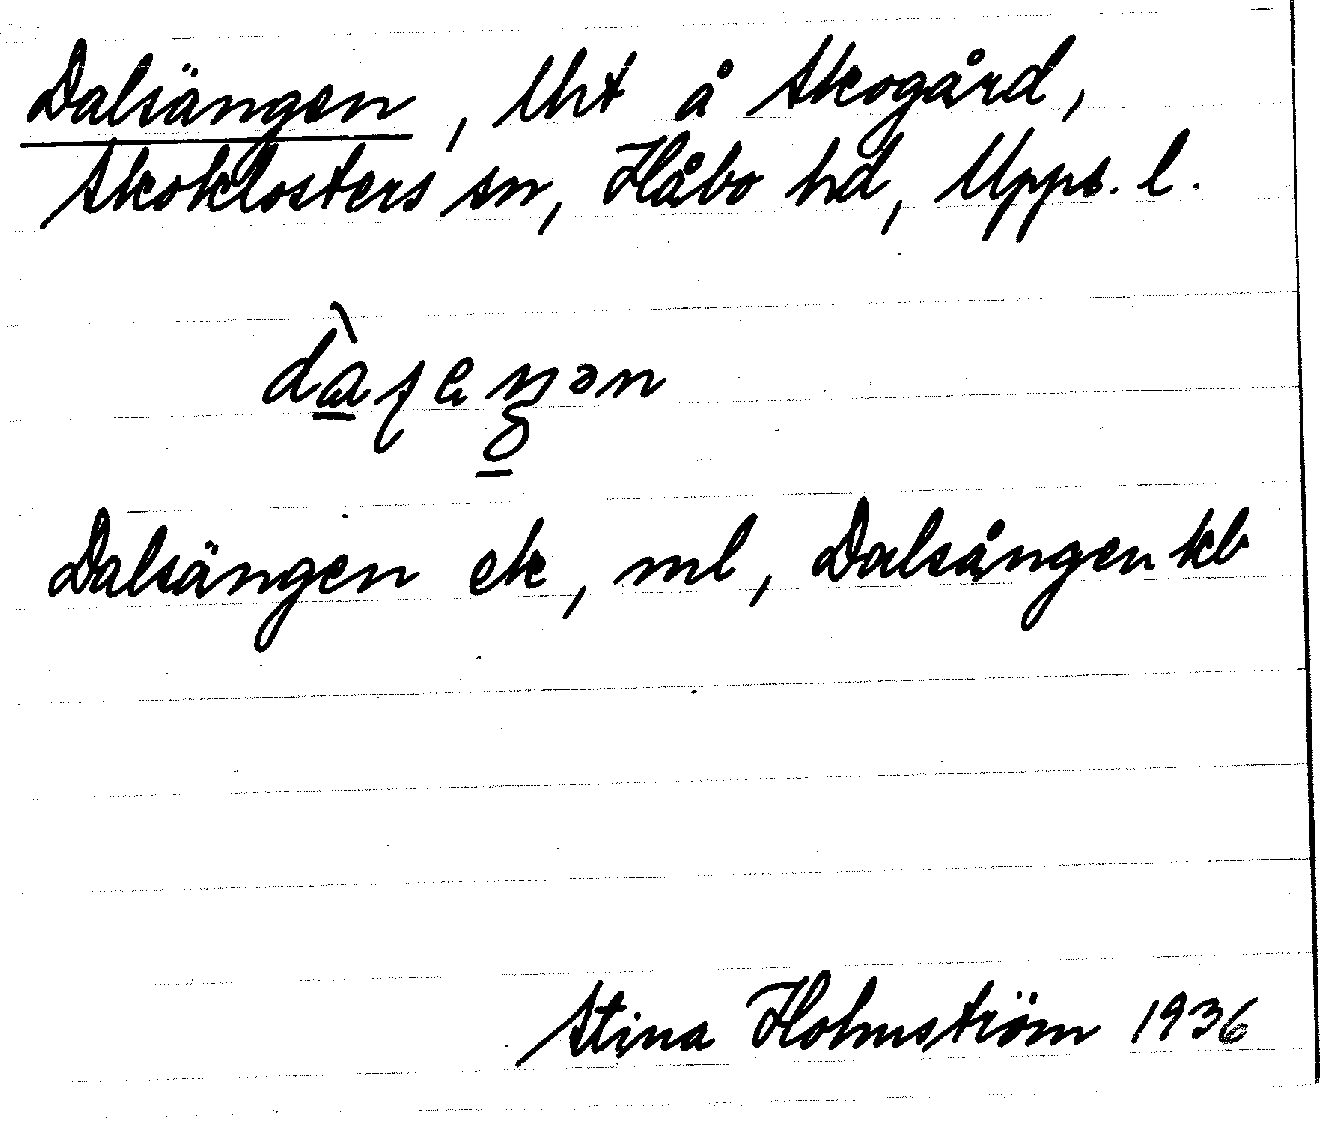 Dalsängen, lht å Skogård,
Skoklosters sn, Håbo hd, Upps. l.
Dalsängen ek, ml, Dalsången kb
Stina Holmström 1936